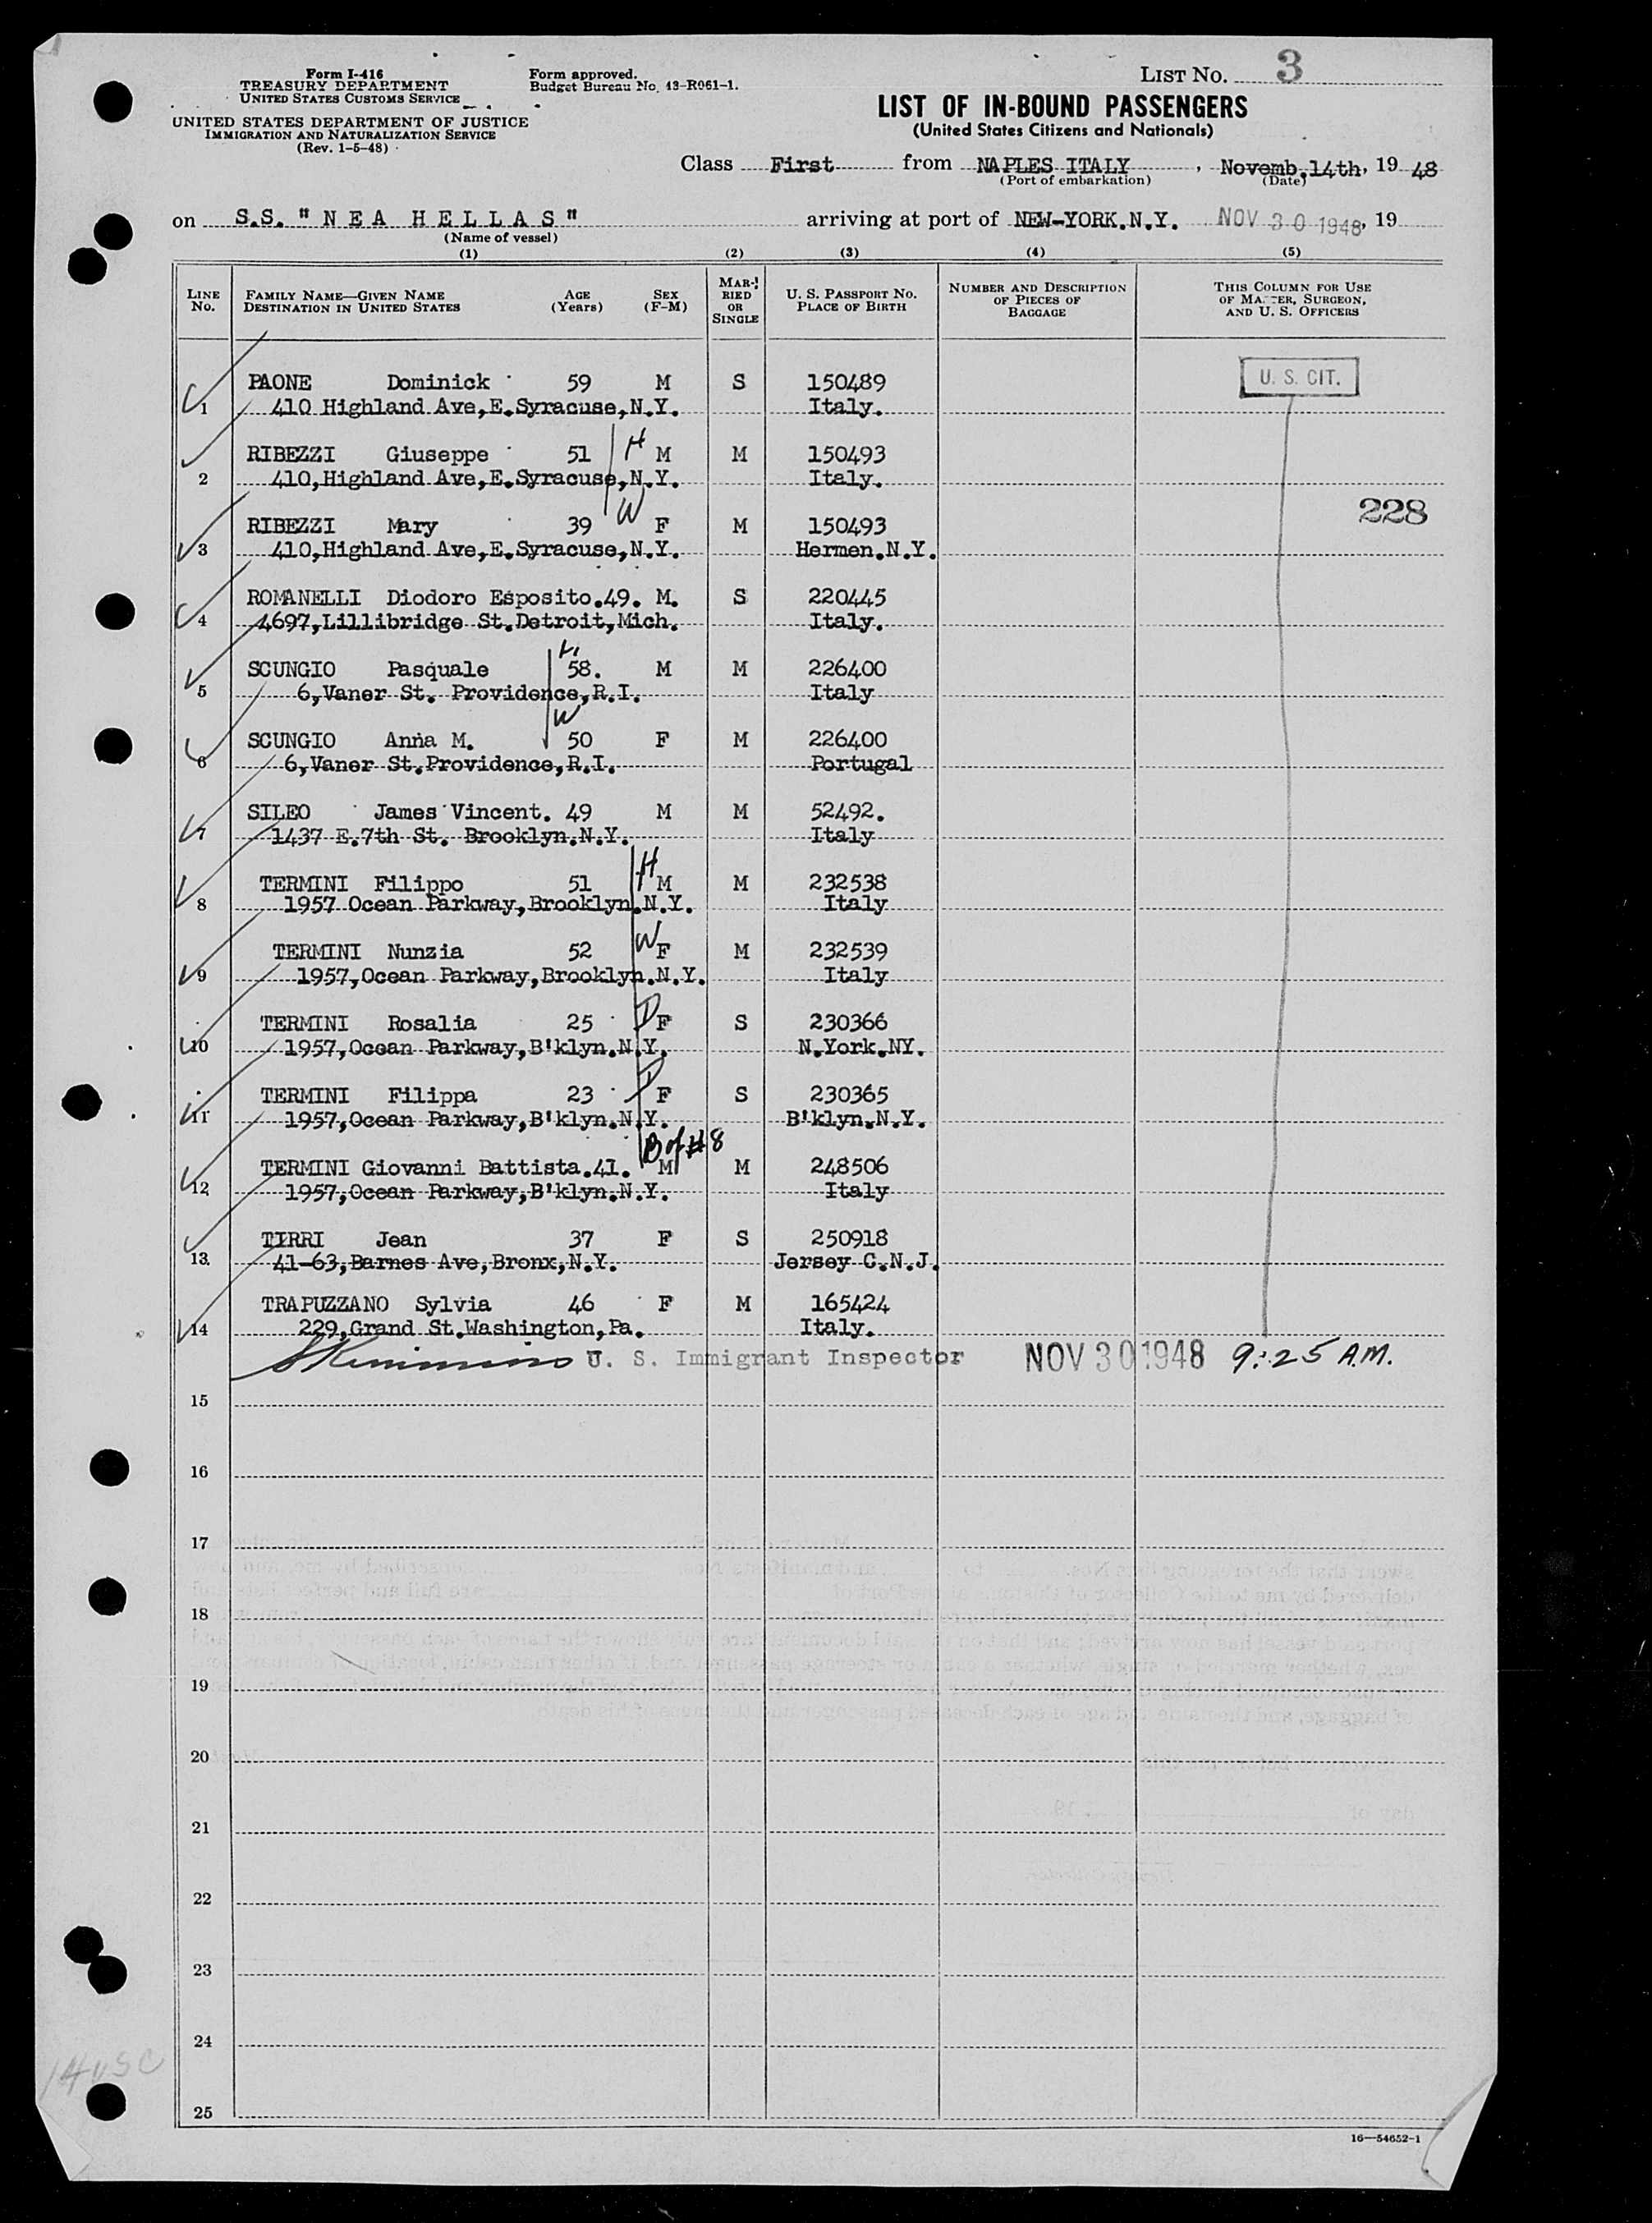 Form I-416
TREASURY DEPARTMENT
UNITED STATES CUSTOMS SERVICE
UNITED STATES DEPARTMENT OF JUSTICE
IMMIGRATION AND NATURALIZATION SERVICE
(Rev. 1-5-48)
Form approved.
Budget Bureau No. 43-R061-1.
LIST No. 3
LIST OF IN-BOUND PASSENGERS
(United States Citizens and Nationals)
Class First from NAPLES ITALY, Novemb.14th, 19 48
(Port of embarkation) (Date)
on S.S. "NEA HELLAS" arriving at port of NEW-YORK.N.Y. NOV 30 1948, 19
(Name of vessel)
(1) (2) (3) (4) (5)
LINE No. FAMILY NAME—GIVEN NAME DESTINATION IN UNITED STATES AGE (Years) SEX (F-M) MARRIED OR SINGLE U. S. PASSPORT No. PLACE OF BIRTH NUMBER AND DESCRIPTION OF PIECES OF BAGGAGE THIS COLUMN FOR USE OF MASTER, SURGEON, AND U. S. OFFICERS
PAONE Dominick 59 M S 150489 U. S. CIT.
1 410 Highland Ave,E.Syracuse,N.Y. Italy.
RIBEZZI Giuseppe 51 H M M 150493
2 410,Highland Ave,E.Syracuse,N.Y. Italy.
228
RIBEZZI Mary 39 W F M 150493
3 410,Highland Ave,E.Syracuse,N.Y. Hermen.N.Y.
ROMANELLI Diodoro Esposito.49. M. S 220445
4 4697,Lillibridge St.Detroit,Mich. Italy.
SCUNGIO Pasquale H 58. M M 226400
5 6,Vaner St. Providence,R.I. Italy
SCUNGIO Anna M. W 50 F M 226400
6 6,Vaner St.Providence,R.I. Portugal
SILEO James Vincent. 49 M M 52492.
7 1437 E.7th St. Brooklyn.N.Y. Italy
TERMINI Filippo 51 H M M 232538
8 1957 Ocean Parkway,Brooklyn.N.Y. Italy
TERMINI Nunzia 52 W F M 232539
9 1957,Ocean Parkway,Brooklyn.N.Y. Italy
TERMINI Rosalia 25 D F S 230366
10 1957,Ocean Parkway,B'klyn.N.Y. N.York.NY.
TERMINI Filippa 23 D F S 230365
11 1957,Ocean Parkway,B'klyn.N.Y. B'klyn.N.Y.
B of #8
TERMINI Giovanni Battista.41. M M 248506
12 1957,Ocean Parkway,B'klyn.N.Y. Italy
TIRRI Jean 37 F S 250918
13 41-63,Barnes Ave,Bronx,N.Y. Jersey C.N.J.
TRAPUZZANO Sylvia 46 F M 165424
14 229,Grand St.Washington,Pa. Italy.
U. S. Immigrant Inspector NOV 30 1948 9:25 A.M.
15
16
17
18
19
20
21
22
23
24
25
14 USC
16—54652-1